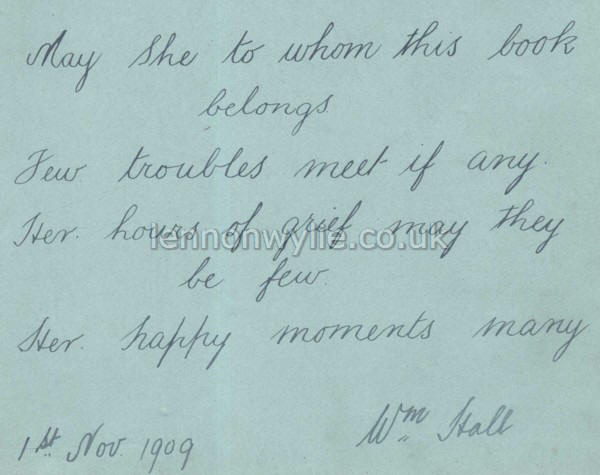 May she to whom this book
belongs
Few troubles meet if any.
Her hours of grief may they
lennonwylie.co.uk
be few.
Her happy moments many
Wm Hall
1st Nov. 1909